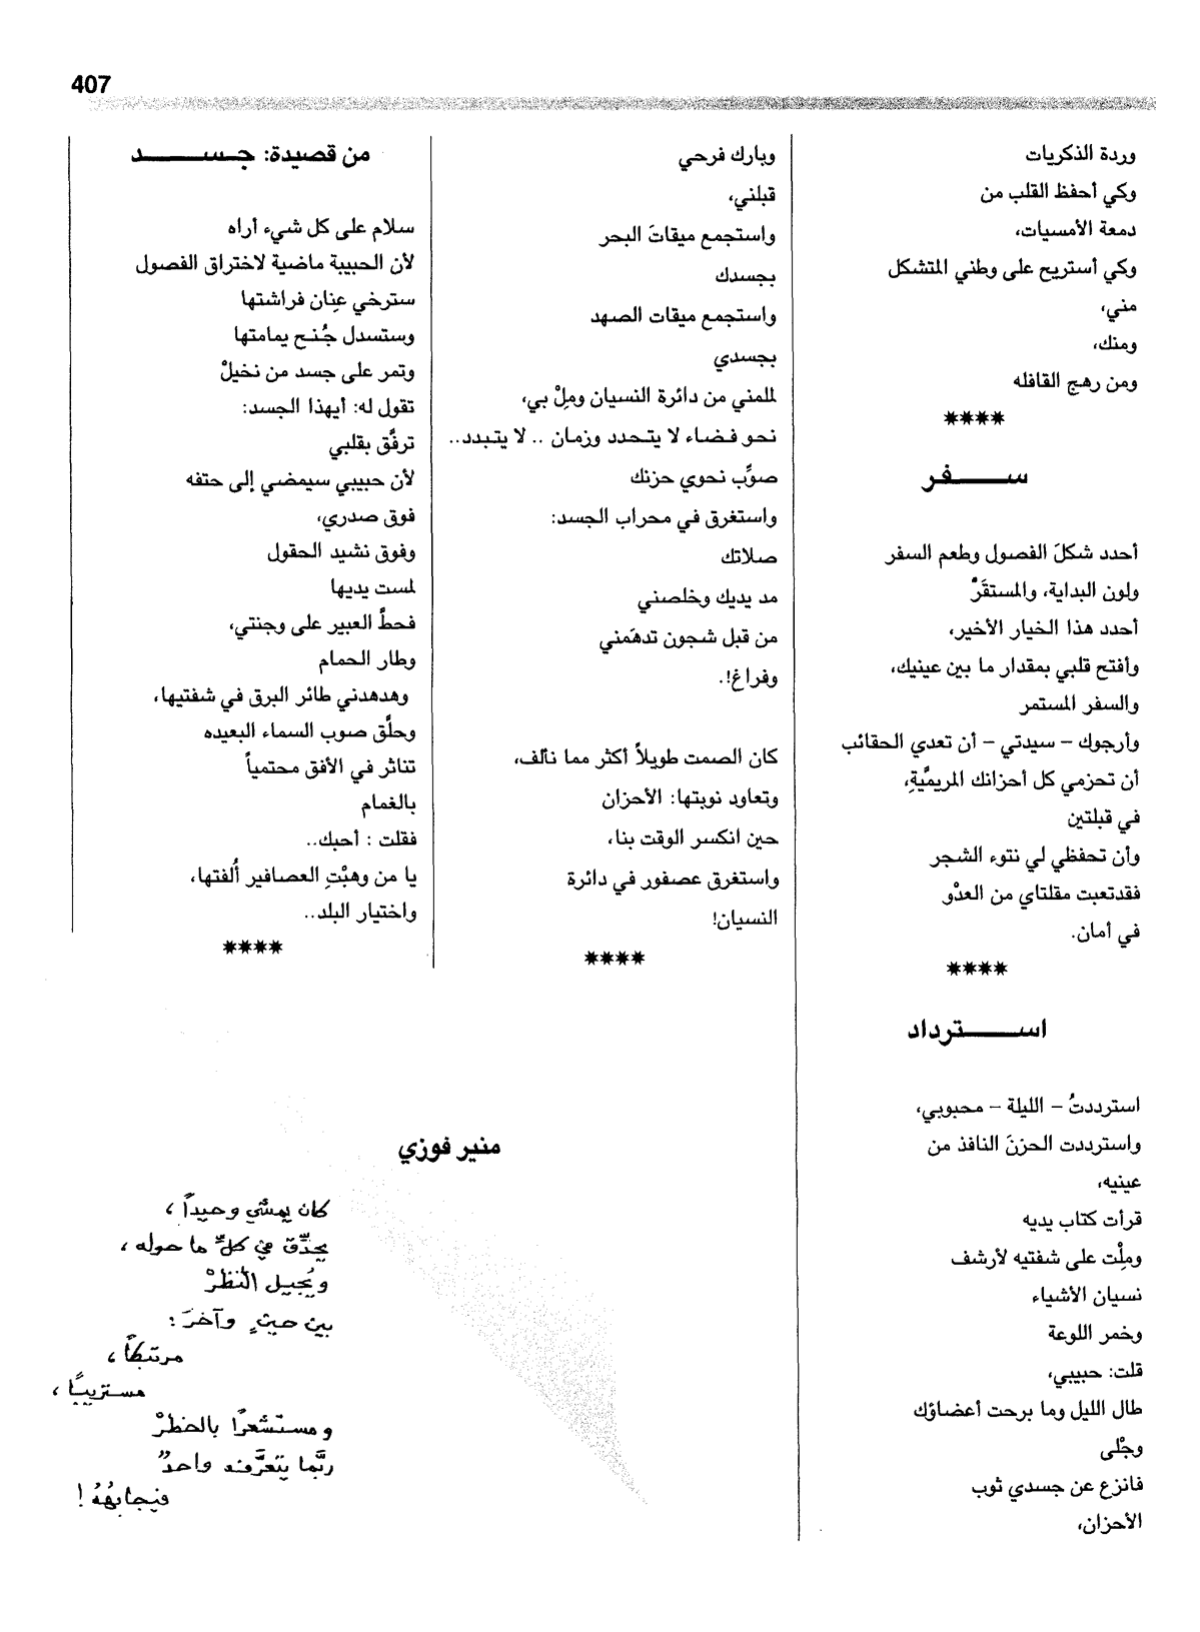 407
وردة الذكريات
وكي أحفظ القلب من
دمعة الأمسيات،
وكي أستريح على وطني المتشكل
مني،
ومنك،
ومن رهج القافله
****
ســـــــفر
أحدد شكلَ الفصول وطعم السفر
ولون البداية، والمستقَرّْ
أحدد هذا الخيار الأخير،
وأفتح قلبي بمقدار ما بين عينيك،
والسفر المستمر
وأرجوك – سيدتي – أن تعدي الحقائب
أن تحزمي كل أحزانك المريميَّةِ،
في قبلتين
وأن تحفظي لي نتوء الشجر
فقدتعبت مقلتاي من العدْو
في أمان.
****
اســـــــترداد
استرددتُ – الليلة – محبوبي،
واسترددت الحزنَ النافذ من
عينيه،
قرأت كتاب يديه
وملِْت على شفتيه لأرشف
نسيان الأشياء
وخمر اللوعة
قلت: حبيبي،
طال الليل وما برحت أعضاؤك
وجْلى
فانزع عن جسدي ثوب
الأحزان،
وبارك فرحي
قبلني،
واستجمع ميقاتَ البحر
بجسدك
واستجمع ميقات الصهد
بجسدي
للمني من دائرة النسيان ومِلْ بي،
نحو فضاء لا يتحدد وزمان .. لا يتبدد..
صوِّب نحوي حزنك
واستغرق في محراب الجسد:
صلاتك
مد يديك وخلصني
من قبل شجون تدهَمني
وفراغ!.
كان الصمت طويلاً أكثر مما نألف،
وتعاود نوبتها: الأحزان
حين انكسر الوقت بنا،
واستغرق عصفور في دائرة
النسيان!
****
من قصيدة: جـــســـــــد
سلام على كل شيء أراه
لأن الحبيبة ماضية لاختراق الفصول
سترخي عِنان فراشتها
وستسدل جُنح يمامتها
وتمر على جسد من نخيلْ
تقول له: أيهذا الجسد:
ترفَّق بقلبي
لأن حبيبي سيمضي إلى حتفه
فوق صدري،
وفوق نشيد الحقول
لمست يديها
فحطَّ العبير على وجنتي،
وطار الحمام
وهدهدني طائر البرق في شفتيها،
وحلَّق صوب السماء البعيده
تناثر في الأفق محتمياً
بالغمام
فقلت : أحبك..
يا من وهبْتِ العصافير أُلفتها،
واختيار البلد..
****
منير فوزي
كان يمشي وحيداً ،
يحدّق في كلِّ ما حوله ،
ويُجيل النظرْ
بين حينٍ وآخرَ :
مرتبكاً ،
مستريباً ،
ومستشعرًا بالخطرْ
ربَّما يتعرَّفه واحدٌ
فيجابِهُهُ !